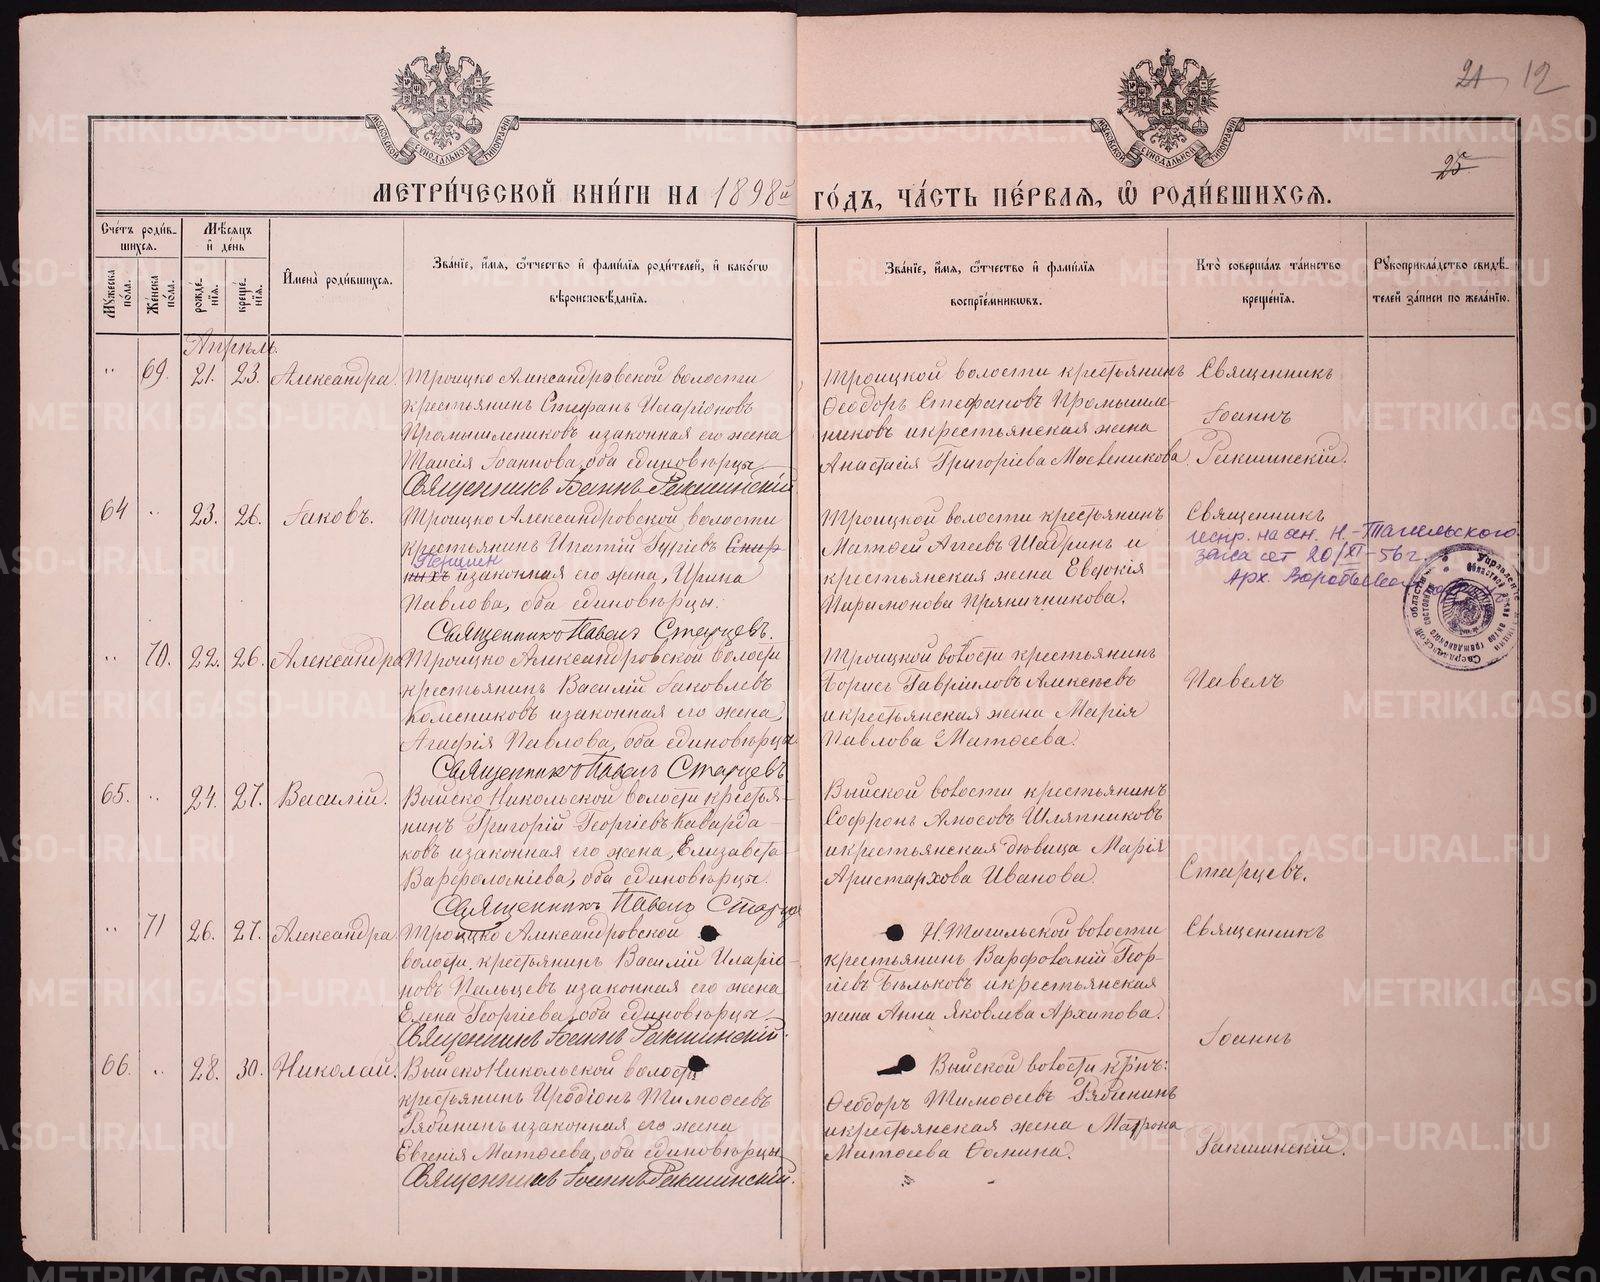 21 12
25
МОСКОВСКОЙ СѴНОДАЛЬНОЙ ТИПОГРАФІИ
МОСКОВСКОЙ СѴНОДАЛЬНОЙ ТИПОГРАФІИ
МЕТРИ́ЧЕСКОЙ КНИ́ГИ НА 1898й ГО́ДЪ, ЧА́СТЬ ПЕ́РВАЯ, Ѡ РОДИ́ВШИХСЯ.
Сче́тъ роди́в-
шихся.
Мꙋжеска по́ла.
Же́нска по́ла.
Мѣ́сяцъ
и҆ де́нь
рожде́нїя.
креще́нїя.
И҆мена̀ роди́вшихся.
Зва́нїе, и҆́мя, ѻ҆́тчество и҆ фами́лїя роди́телей, и҆ како́гѡ
вѣроисповѣ́данїя.
Зва́нїе, и҆́мя, ѻ҆́тчество и҆ фами́лїя
воспрїе́мникѡвъ.
Кто̀ соверша́лъ та́инство
креще́нїя.
Рꙋкоприкла́дство свидѣ́-
телей за́писи по жела́нїю.
Апрѣль.
" 69. 21. 23. Александра
Троицко Александровской волости
крестьянинъ Стефанъ Иларіоновъ
Промышлениковъ и законная его жена
Таисія Іоаннова, оба единовѣрцы.
Священникъ Іоаннъ Ракшинскій
Троицкой волости крестьянинъ
Ѳеодоръ Стефановъ Промышле-
никовъ и крестьянская жена
Анастасія Григоріева
Священникъ
Іоаннъ
Ракшинскій.
64 " 23. 26. Іаковъ.
Троицко Александровской волости
крестьянинъ Ипатій Гуріевъ
Першин
ныхъ и законная его жена, Ирина
Павлова, оба единовѣрцы.
Священникъ Павелъ Старцевъ.
Троицкой волости крестьянинъ
Матѳей Аггеевъ Шадринъ и
крестьянская жена Евдокія
Парамонова Пряничникова.
Священникъ
испр. на осн. Н.-Тагильского
загса от 20/XI-56 г.
Арх. Воробьева
" 70. 22. 26. Александра
Троицко Александровской волости
крестьянинъ Василій Іаковлевъ
Колесниковъ и законная его жена,
Агафія Павлова, оба единовѣрцы
Священникъ Павелъ Старцевъ
Троицкой волости крестьянинъ
Борисъ Гавріиловъ Алексѣевъ
и крестьянская жена Марія
Павлова Матѳеева.
Павелъ
65. " 24. 27. Василій.
Выйско Никольской волости крестья-
нинъ Григорій Георгіевъ Каварда-
ковъ и законная его жена, Елизавета
Варѳоломіева, оба единовѣрцы.
Священникъ Павелъ Старцев
Выйской волости крестьянинъ
Софронъ Амосовъ Шляпниковъ
и крестьянская дѣвица Марія
Аристархова Иванова.
Старцевъ.
" 71 26. 27. Александра
Троицко Александровской
волости, крестьянинъ Василій Иларіо-
новъ Пальцевъ и законная его жена
Елена Георгіева, оба единовѣрцы.
Священникъ Іоаннъ Ракшинскій.
Н. Тагильской волости
крестьянинъ Варѳоломій Геор-
гіевъ Бѣльковъ и крестьянская
жена Анна Яковлева Архипова.
Священникъ
Іоаннъ
66. " 28. 30. Николай.
Выйско Никольской волости
крестьянинъ Иродіонъ Тимоѳеевъ
Рябининъ и законная его жена
Евгенія Матѳеева, оба единовѣрцы
Священникъ Іоаннъ Ракшинскій.
Выйской волости
Ѳеодоръ Тимоѳеевъ Рябининъ
и крестьянская жена Матрона
Матѳеева Ѳомина.
Ракшинскій.
METRIKI.GASO-URAL.RU